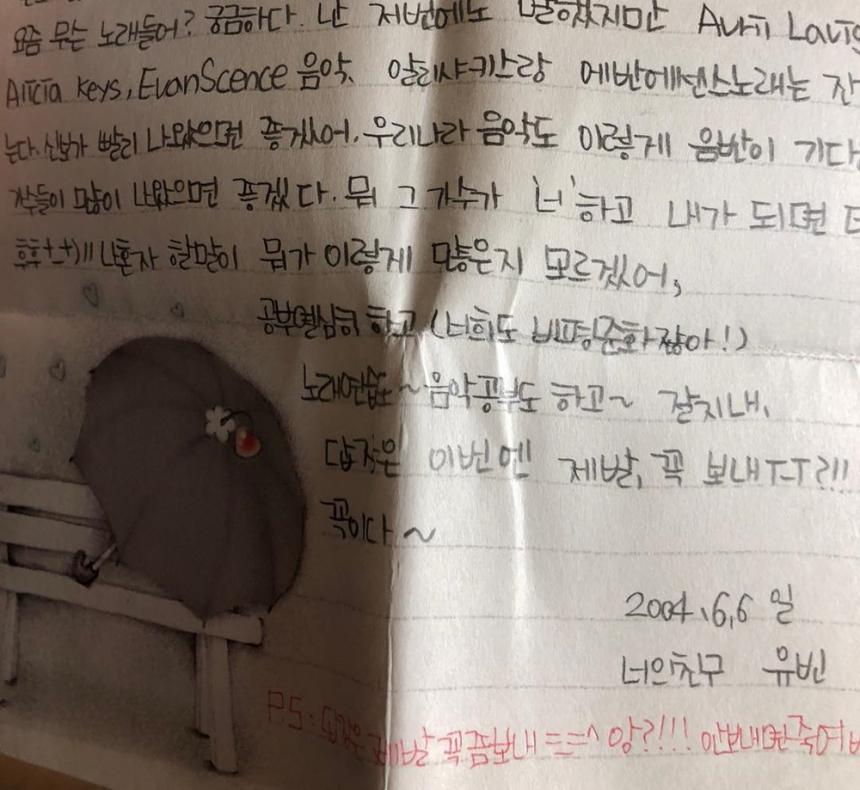 요즘 무슨 노래들어? 궁금하다. 난 저번에도 말했지만 Avril Lavig
Alicia keys, EvanScence 음악. 알리샤키스랑 에반에센스노래는 잔
는다. 신보가 빨리 나왔으면 좋겠어. 우리나라 음악도 이렇게 음반이 기다
가수들이 많이 나왔으면 좋겠다. 뭐 그 가수가 '너' 하고 내가 되면 더
후후+_+)!! 나혼자 할말이 뭐가 이렇게 많은지 모르겠어,
공부열심히 하고 (너희도 비평준화잖아!)
노래연습도~음악공부도 하고~ 잘지내.
답장은 이번엔 제발, 꼭 보내 T-T?!!
꼭이다~
2004.6.6 일
너의친구 유빈
P.S: 답장은 제발 꼭좀보내 ㅡㅡ^ 앙?!!! 안보내면죽여버